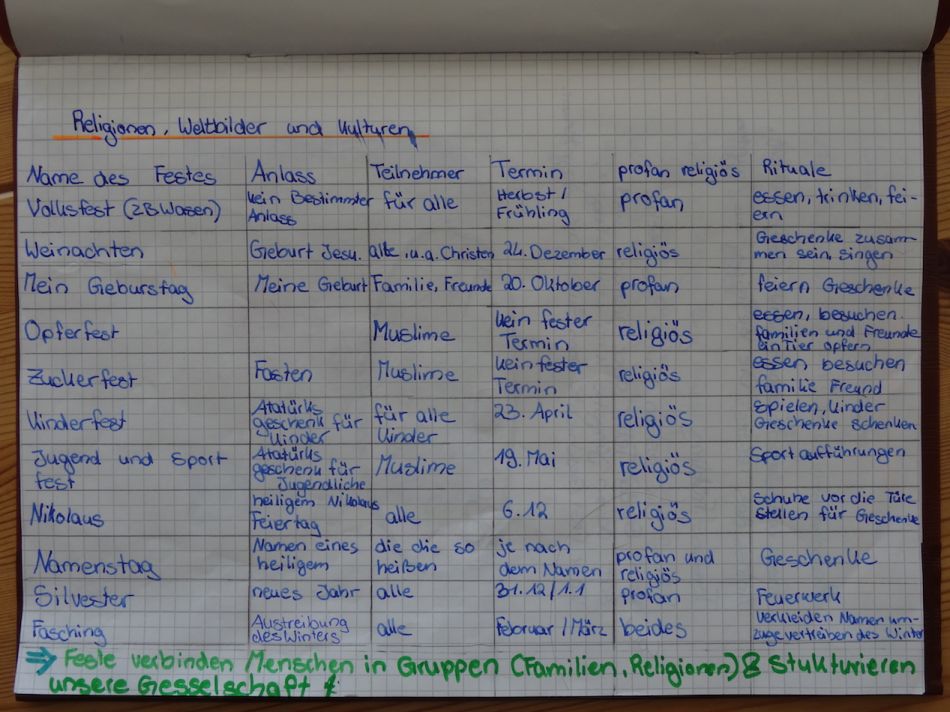 Religionen, Weltbilder und Kulturen
Name des Festes Anlass Teilnehmer Termin profan religiös Rituale
Volksfest (zB Wasen) kein Bestimmter Anlass für alle Herbst / Frühling profan essen, trinken, feiern
Weinachten Geburt Jesu. alle .u.a. Christen 24. Dezember religiös Geschenke zusammen sein, singen
Mein Geburstag Meine Geburt Familie, Freunde 20. Oktober profan feiern Geschenke
Opferfest Muslime kein fester Termin religiös essen, besuchen. familien und Freunde ein Tier opfern
Zuckerfest Fasten Muslime kein fester Termin religiös essen besuchen familie Freund
Kinderfest Atatürks geschenk für Kinder für alle Kinder 23. April religiös Spielen, Kinder Geschenke schenken
Jugend und Sport fest Atatürks geschenk für Jugendliche Muslime 19. Mai religiös Sport aufführungen
Nikolaus heiligem Nikolaus Feiertag alle 6.12 religiös Schuhe vor die Türe stellen für Geschenke
Namenstag Namen eines heiligem die die so heißen je nach dem Namen profan und religiös Geschenke
Silvester neues Jahr alle 31.12/1.1 profan Feuerwerk
Fasching Austreibung des Winters alle Februar / März beides verkleiden Namen umzuge vertreiben des Winter
⇒ Feste verbinden Menschen in Gruppen (Familien, Religionen) & Stukturieren
unsere Gesselschaft